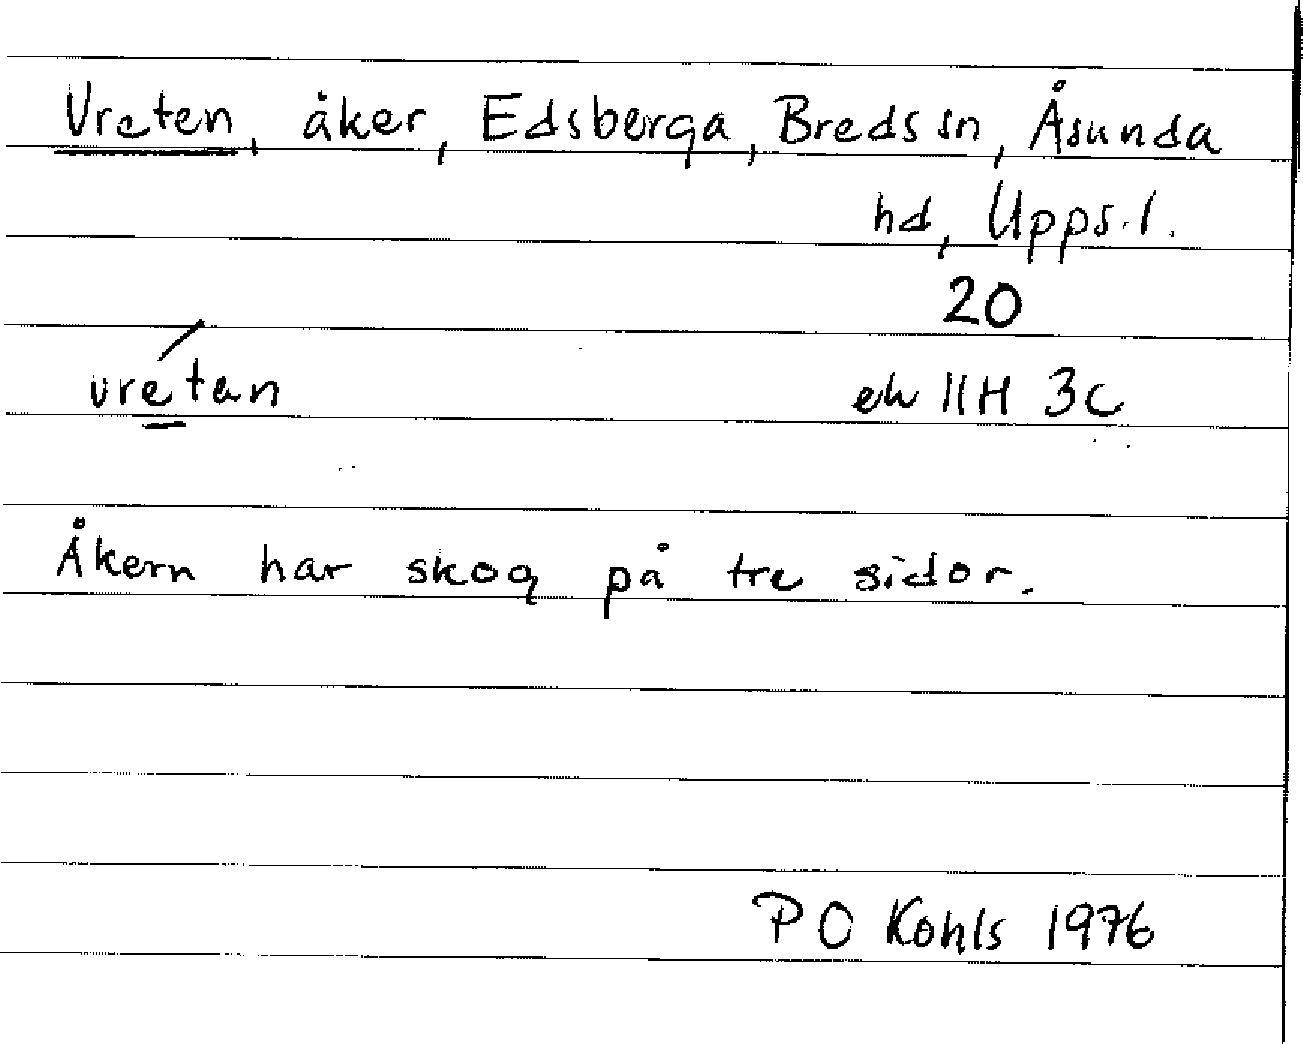 Vreten, åker, Edsberga, Breds sn, Åsunda
hd, Upps. l.
20
vretan
ek 11H 3c
Åkern har skog på tre sidor.
P O Kohls 1976